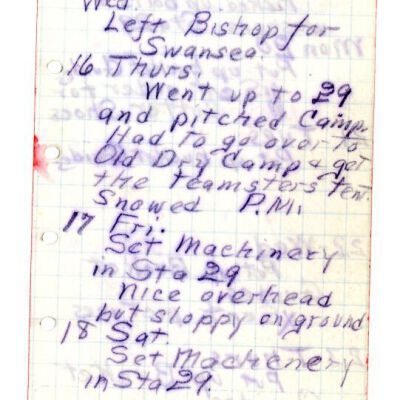 Wed.
Left Bishop for
Swansea.
16 Thurs.
Went up to 29
and pitched Camp.
Had to go over to
Old Dry Camp & get
the teamsters tent.
Snowed P.M.
17 Fri.
Set Machinery
in Sta 29
Nice overhead
but sloppy on ground
18 Sat.
Set Machenery
in Sta 29.